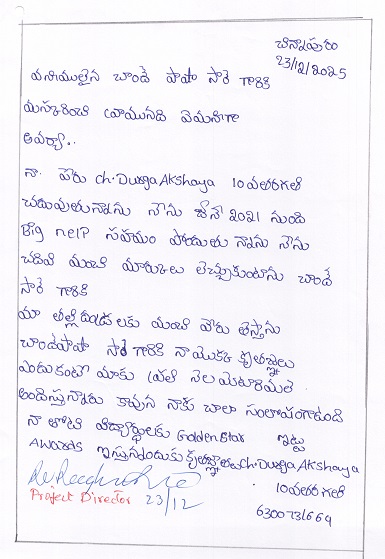 చిన్నాపురం
23/12/2025
చాందే పాషా సార్ గారికి
నమస్కరించి వ్రాయునది ఏమనగా
ఆర్యా..
నా పేరు ch. Durga Akshaya 10వతరగతి
చదువుతున్నాను నేను జూన్ 2021 నుండి
Big help సహాయం పొందుతు న్నాను నేను
చదివి మంచి మార్కులు తెచ్చుకుంటాను చాందే
సార్ గారికి
మా తల్లిదండ్రులకు మంచి పేరు తెస్తాను
చాందేపాషా సార్ గారికి నా యొక్క కృతజ్ఞతలు
ఎందుకంటే మాకు ప్రతి నెల
అందిస్తున్నారు కావున నాకు చాలా సంతోషంగాఉంది
నా తోటి విద్యార్థులకు Golden Star
Awards ఇస్తున్నందుకు కృతజ్ఞతలు
ఇట్లు
ch. Durga Akshaya
10వతరగతి
Project Director 23/12